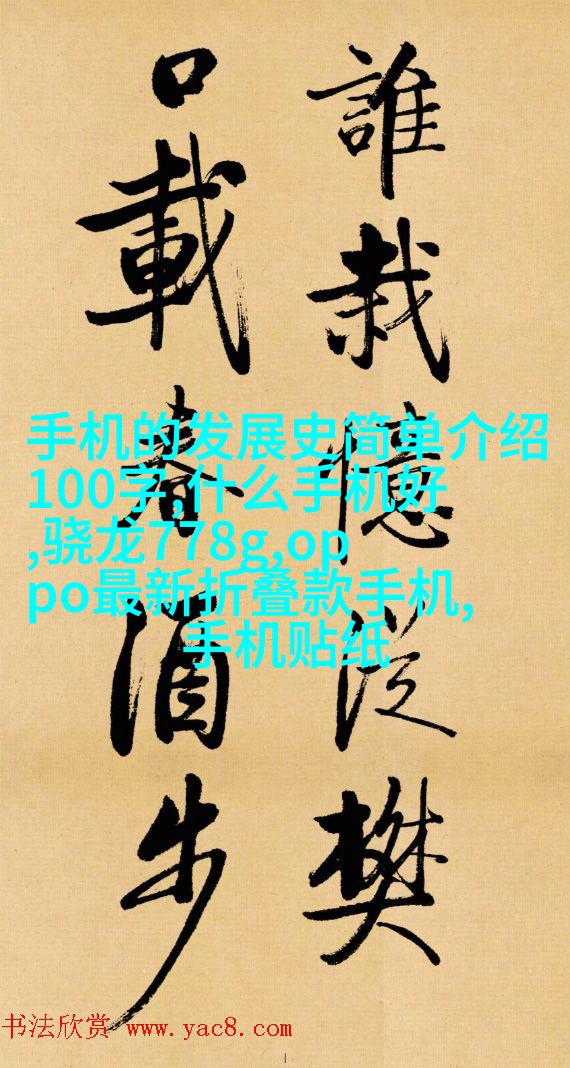 誰栽憶從樊
口載春酒步
手机的发展史简单介绍
100字,什么手机好
,骁龙778g,op
po最新折叠款手机,
手机贴纸
书法欣赏 www.yac8.com